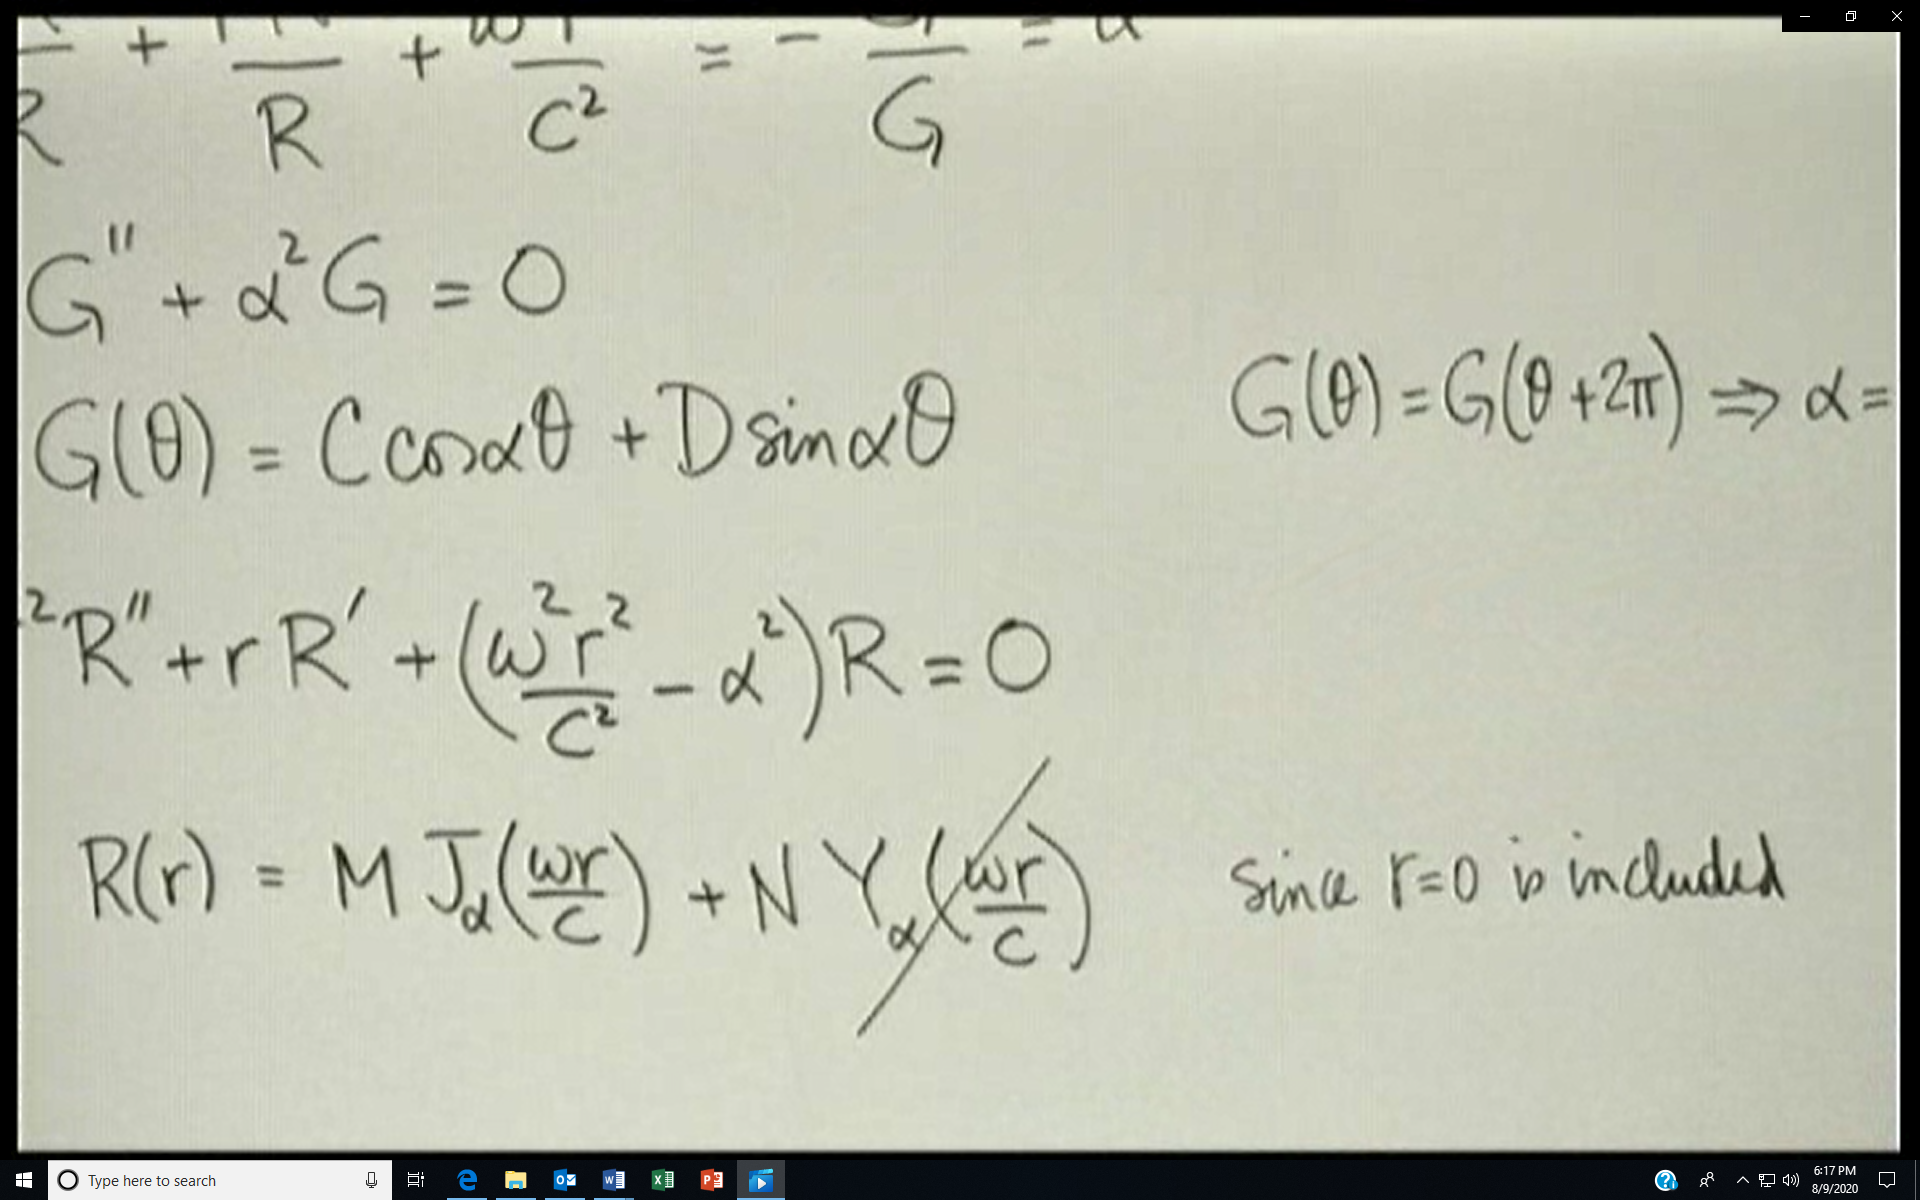 R + R + C² = - G =
G'' + α²G = 0
G(θ) = C cos αθ + D sin αθ
G(θ) = G(θ + 2π) ⇒ α =
²R'' + r R' + (ω²r²/C² - α²) R = 0
R(r) = M J_α(ωr/C) + N Y_α(ωr/C)
since r=0 is included
Type here to search
6:17 PM
8/9/2020